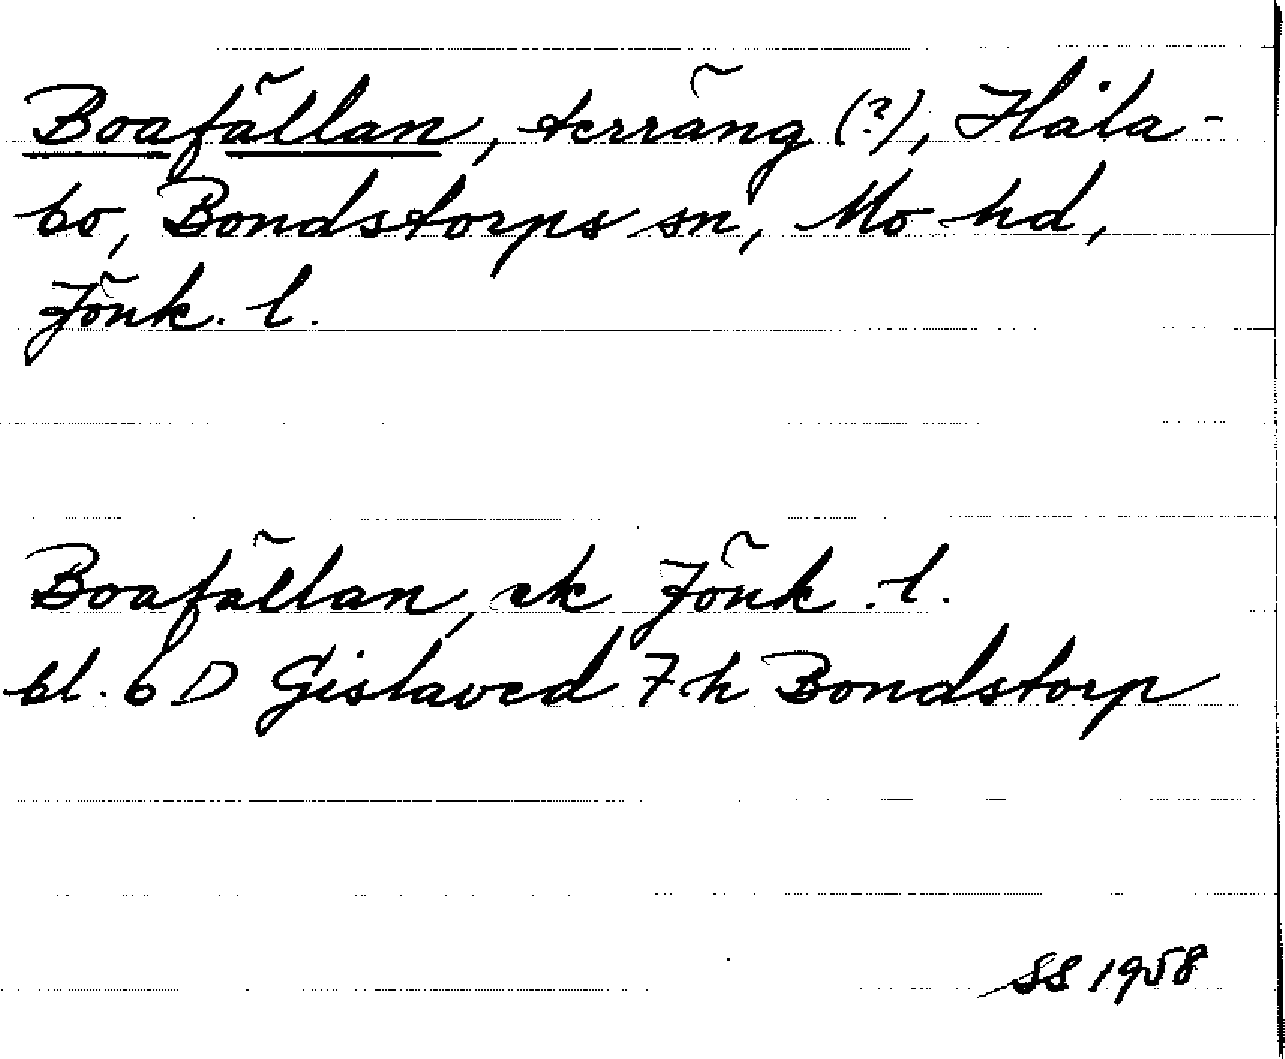 Boafällan, terräng (?), Håla-
bo, Bondstorps sn, Mo hd,
Jönk. l.
Boafällan, ek Jönk. l.
bl. 6 D Gislaved 7 h Bondstorp
SS 1958